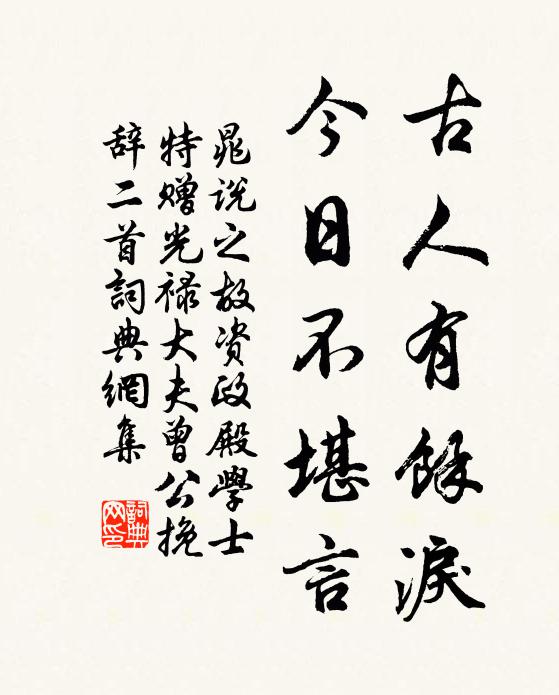 古人有餘淚
今日不堪言
晁说之故资政殿學士
特赠光禄大夫曾公挽
辞二首詞典網集
詞典网印